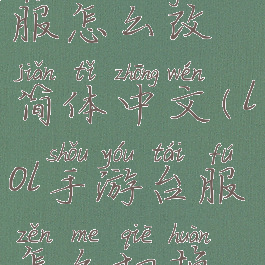 服怎么改
jiǎn tǐ zhōng wén
简体中文(l
shǒu yóu tái fú
ol手游台服
zěn me qiē huàn
怎么切换